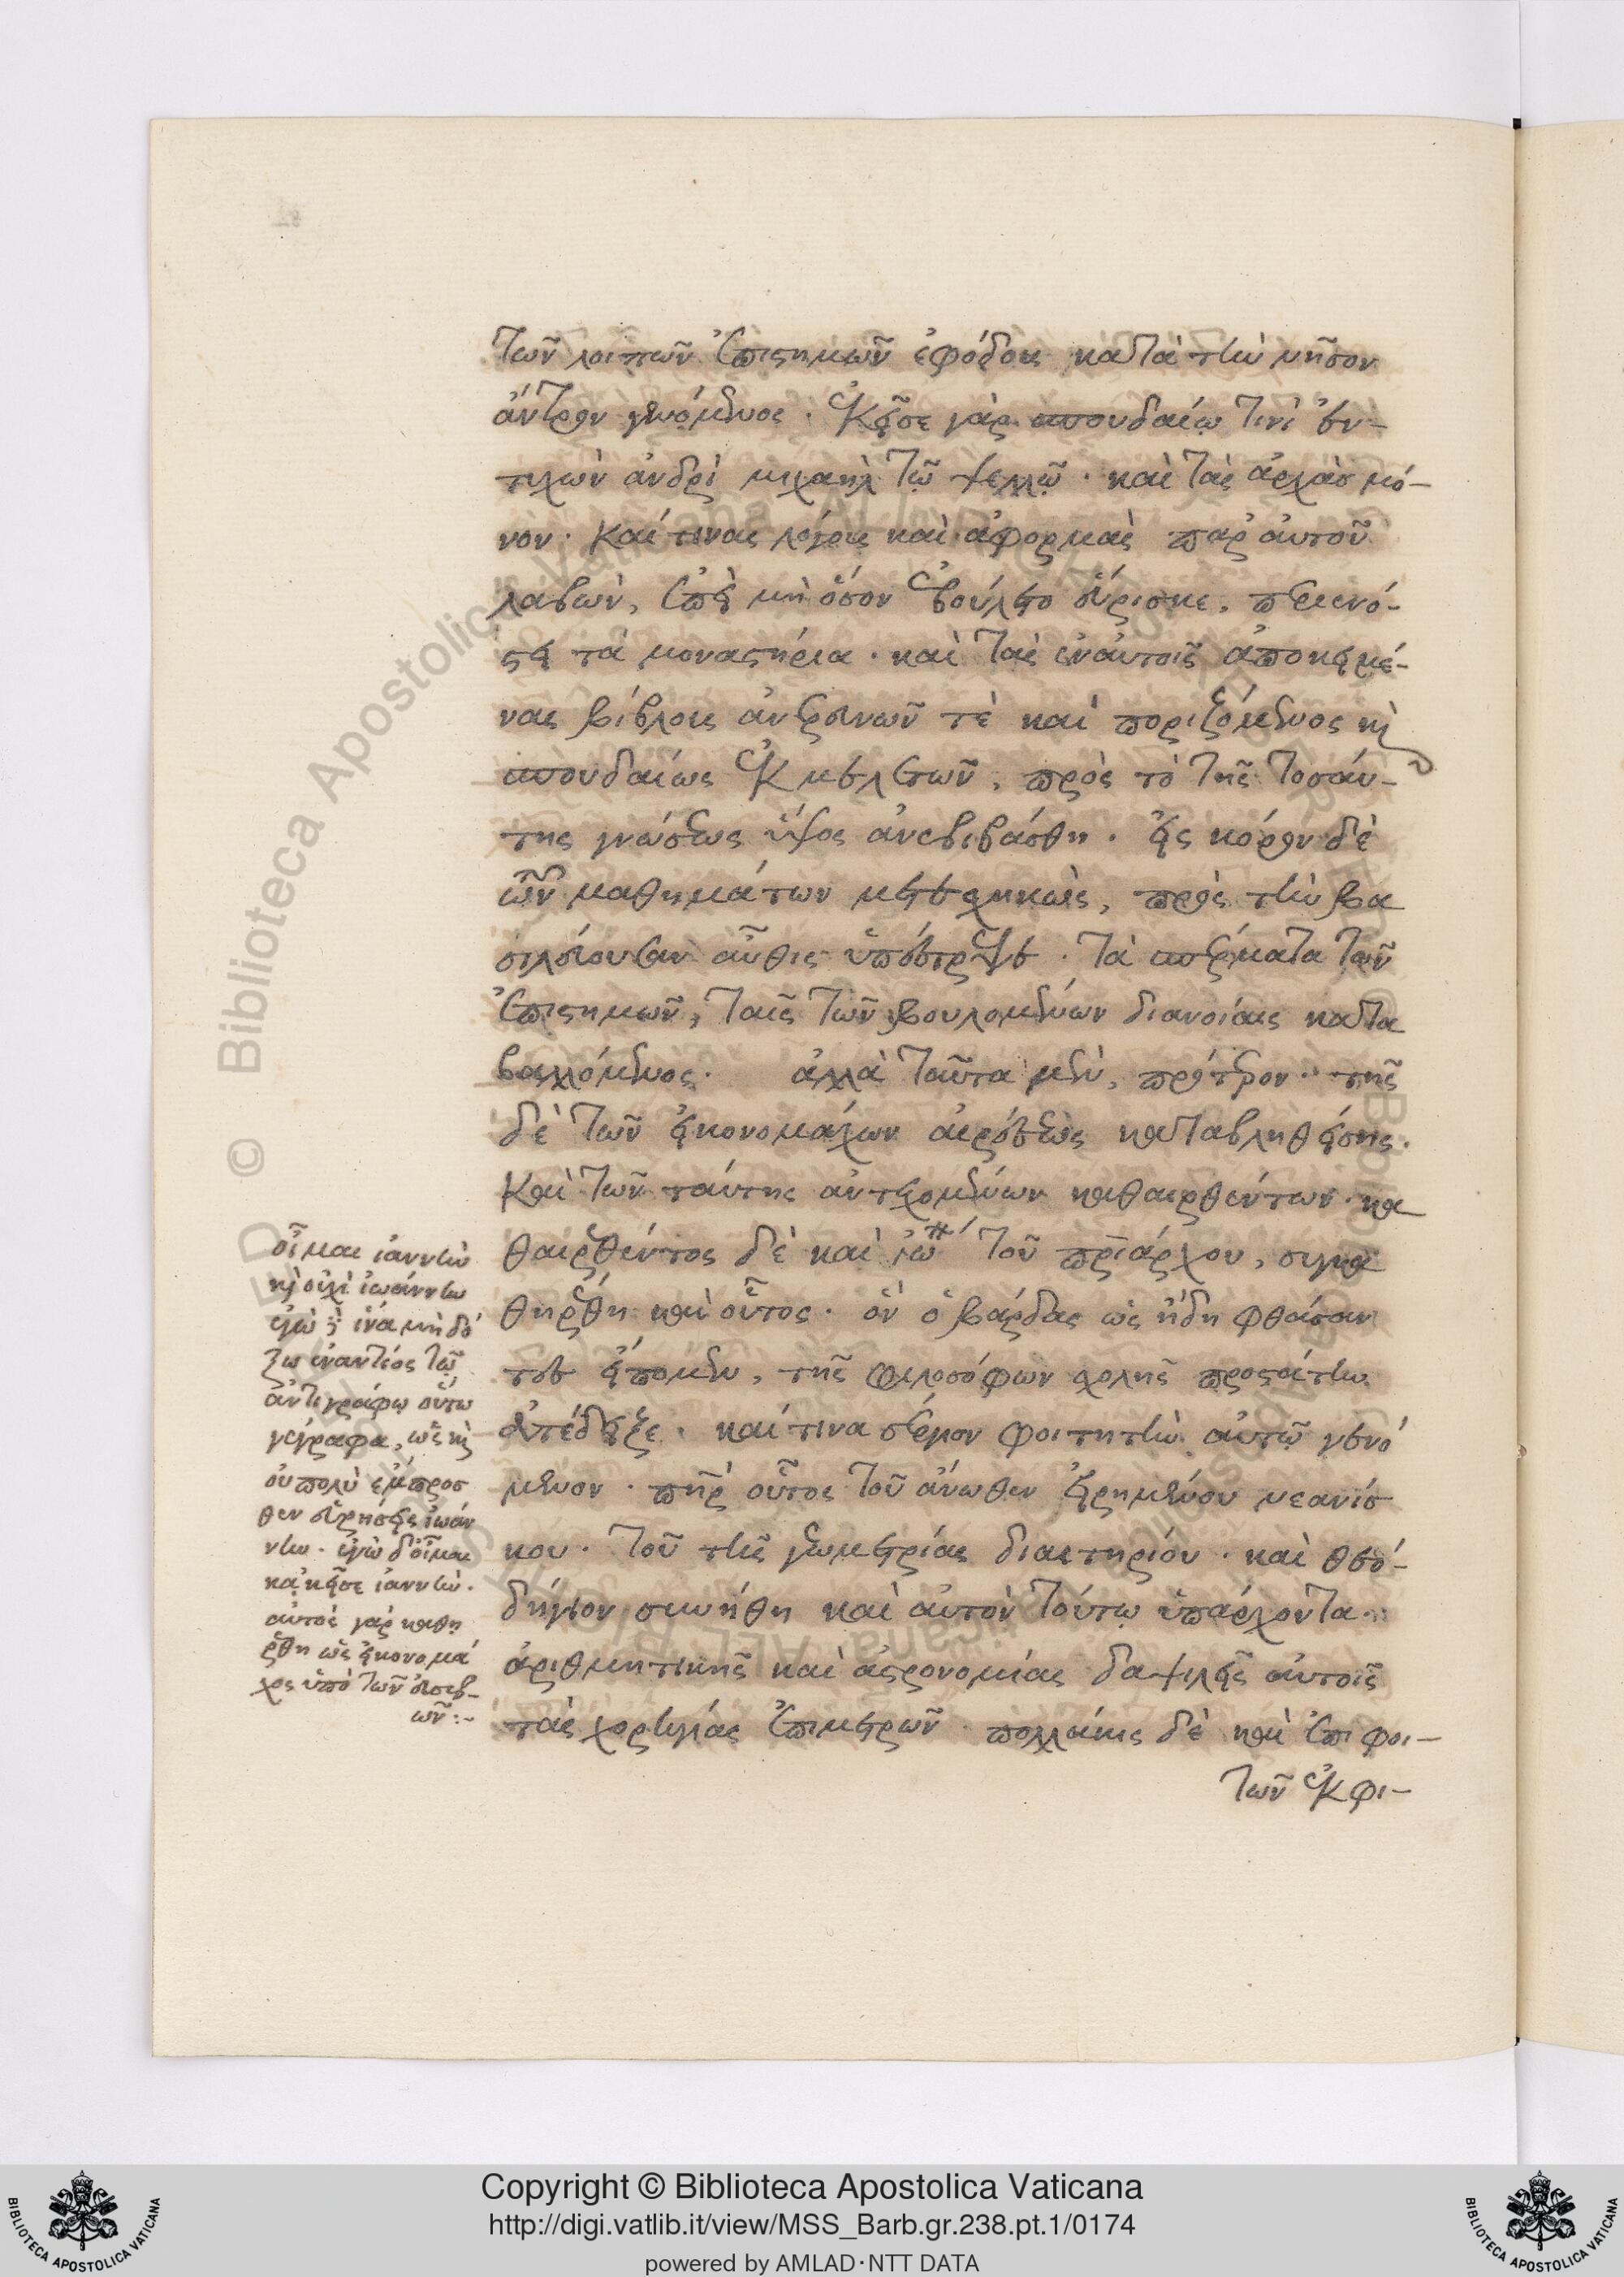 τῶν λοιπῶν ἐπιστημῶν ἐφόδους κατὰ τὴν νῆσον
ἄντρον γενόμενος. ἐκεῖσε γὰρ σπουδαίῳ τινὶ ἐν-
τυχὼν ἀνδρὶ μιχαὴλ τῷ ψελλῷ. καὶ τὰς ἀρχὰσ μό-
νον. καί τινας λόγους καὶ ἀφορμὰς παρ αὐτοῦ
λαβὼν, ἐπεὶ μὴ ὅσον ἐβούλετο εὕρισκε, περιενό-
στει τὰ μοναστήρια. καὶ τὰς ἐναὐτοῖς ἀποκειμέ-
νας βίβλους ἀνερευνῶν τὲ καὶ ποριζόμενος καὶ
σπουδαίως ἐκμελετῶν, πρὸς τὸ τῆς τοσαύ-
της γνώσεως ὕψος ἀνεβιβάσθη. εἰς κόρον δὲ
ὧν μαθημάτων μετεσχηκὼς, πρὸς τὴν βα
σιλεύουσαν αὖθις ὑπέστρεψε. τὰ σπέρματα τῶν
ἐπιστημῶν, ταῖς τῶν βουλομένων διανοίαις κατα
βαλλόμενος. ἀλλὰ ταῦτα μὲν, πρότερον. τῆς
δὲ τῶν εἰκονομάχων αἱρέσεως καταβληθείσης.
καὶ τῶν ταύτης ἀντεχομένων καθαιρεθέντων. κα
θαιρεθέντος δὲ καὶ ἰω τοῦ πριάρχου, συγκα
θηρέθη καὶ οὗτος. ὃν ὁ βάρδας ὡς ἤδη φθάσαν
τες εἴπομεν, τῆς φιλοσόφων σχολῆς προστάτην
ἀπέδειξε. καί τινα σέργιον φοιτητὴν αὐτῷ γενό
μενον. πὴρ οὗτος τοῦ ἄνωθεν εἰρημένου νεανίσ
κου. τοῦ τῆς γεωμετρίας διαιτηρίου. καὶ θεο-
δήγιον συνήθη καὶ αὐτὸν τούτῳ ὑπάρχοντα.
ἀριθμητικῆς καὶ ἀστρονομίας δαψιλεῖς αὐτοῖς
τὰς χορηγίας ἐπιμετρῶν. πολλάκις δὲ καὶ ἐπιφοι-
τῶν ἐκφι-
οἶμαι ἰαννὴν
καὶ οὐχὶ ἰωάννην
ἐγὼ δὲ ἵνα μὴ δό
ξω ἐναντίος τῷ
ἀντιγράφῳ οὕτω
γέγραφα, ὡς καὶ
οὐ πολὺ ἔμπροσ
θεν εὑρήσεις ἰωάν
νην. ἐγὼ δ' οἶμαι
κἀκεῖσε ἰαννὴν.
αὐτὸς γὰρ καθη
ρέθη ὡς εἰκονομά
χος ὑπὸ τῶν εὐσεβ-
ῶν:~
Copyright © Biblioteca Apostolica Vaticana
http://digi.vatlib.it/view/MSS_Barb.gr.238.pt.1/0174
powered by AMLAD·NTT DATA